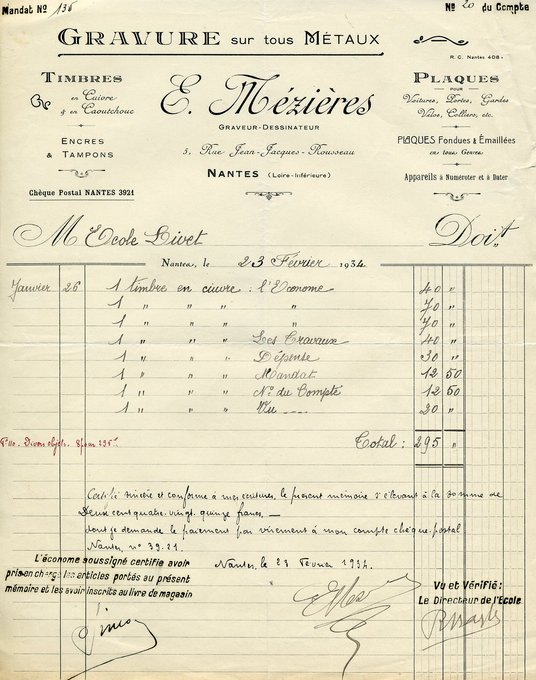 Mandat Nº 136
Nº 20 du Compte
GRAVURE sur tous MÉTAUX
R. C. Nantes 408
TIMBRES
en Cuivre
& en Caoutchouc
ENCRES
& TAMPONS
Chèque Postal NANTES 3921
E. Mézières
GRAVEUR-DESSINATEUR
5, Rue Jean-Jacques-Rousseau
NANTES (Loire-Inférieure)
PLAQUES
POUR
Voitures, Portes, Gardes
Vélos, Colliers, etc.
PLAQUES Fondues & Émaillées
en tous Genres
Appareils à Numéroter et à Dater
M Ecole Livet
Doit
Nantes, le 23 Février 1934
Janvier 26 1 timbre en cuivre : l'Econome 40 "
1 " " " " 70 "
1 " " " 70 "
1 " " " Les Travaux 40 "
1 " " " Dépense 30 "
1 " " " Mandat 12 50
1 " " " Nº du Compte 12 50
1 " " " Vu 20 "
Divers objets. 8 pour 295
Total : 295 "
Certifié sincère et conforme à mes écritures, le présent mémoire s'élevant à la somme de
Deux cent quatre-vingt-quinze francs, —
dont je demande le paiement par virement à mon compte chèque-postal
Nantes, nº 39.21.
Nantes, le 23 Février 1934.
L'économe soussigné certifie avoir
pris en charge les articles portés au présent
mémoire et les avoir inscrits au livre de magasin
Vu et Vérifié:
Le Directeur de l'Ecole